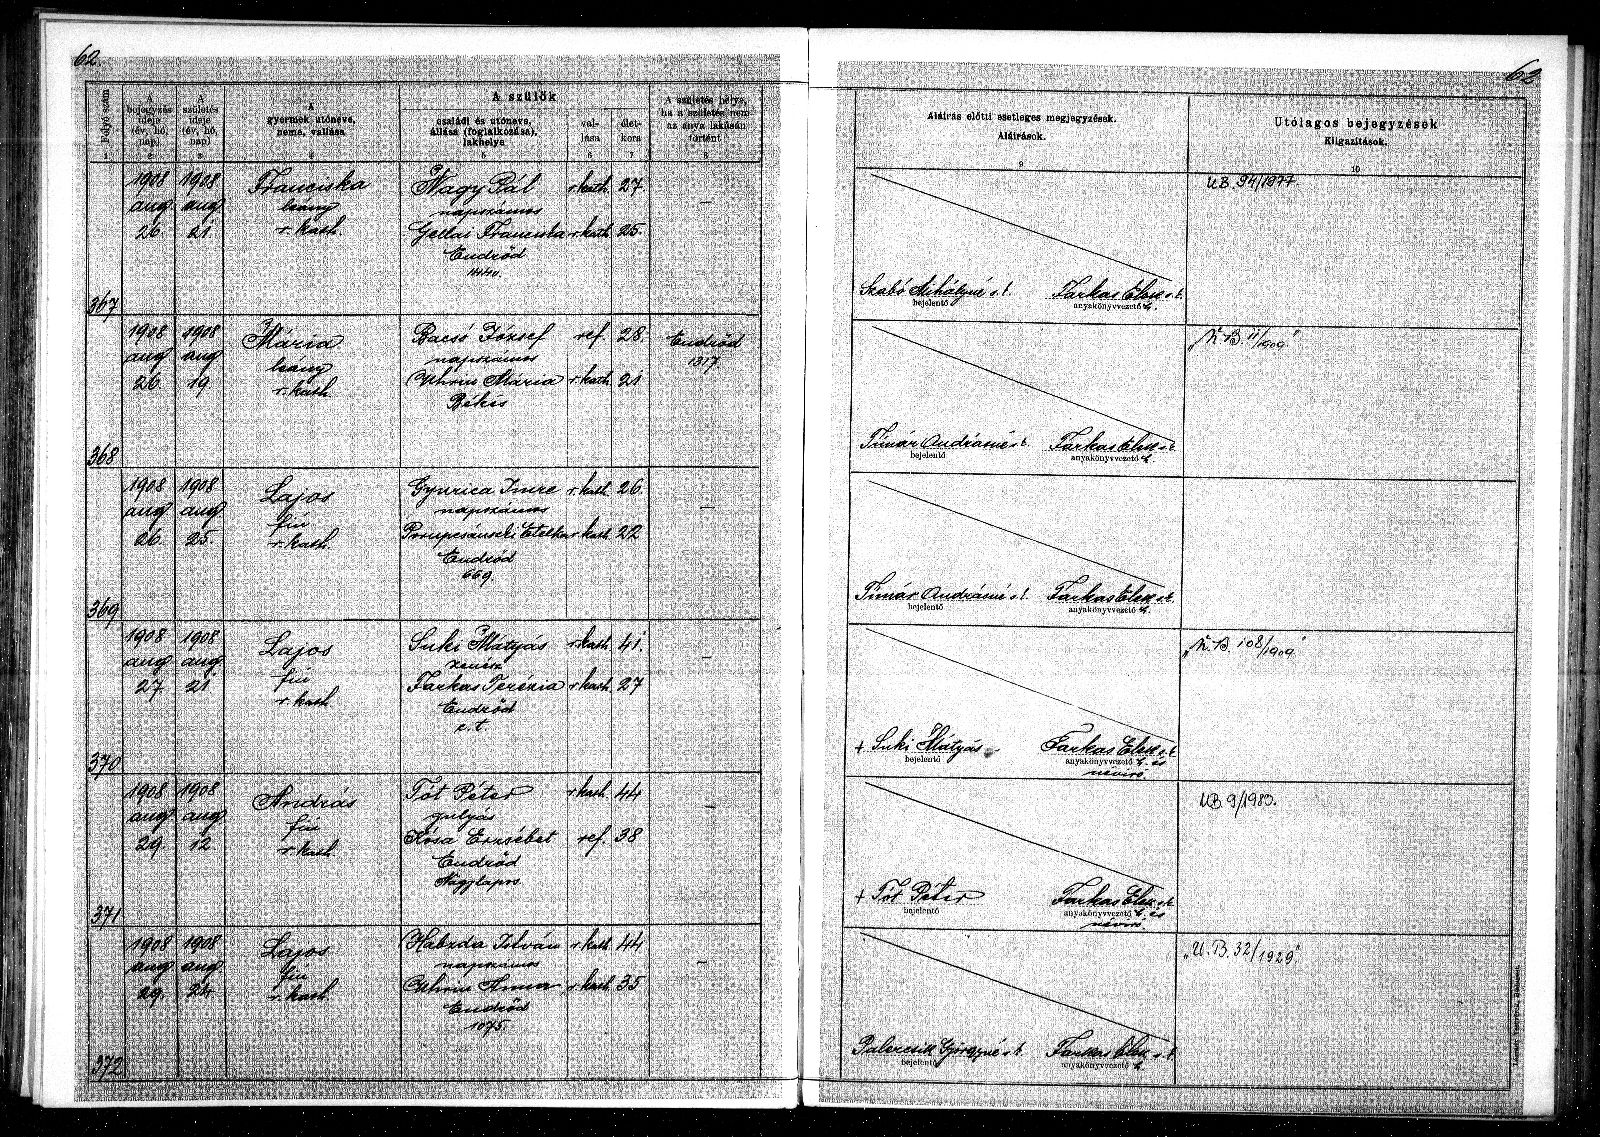 62.
62
Folyó szám
A bejegyzés ideje (év, hó, nap)
A születés ideje (év, hó, nap)
A gyermek utóneve, neme, vallása
A szülők
családi és utóneve, állása (foglalkozása), lakhelye
vallása
életkora
A születés helye, ha a születés nem az anya lakásán történt
Aláírás előtti esetleges megjegyzések.
Aláírások.
Utólagos bejegyzések
Kiigazítások.
1 2 3 4 5 6 7 8 9 10
1908 1908 Franciska Nagy Pál r. kath. 27.
aug aug leány napszámos —
26. 21 r. kath. Gellai Franciska r. kath 25.
Endrőd
1440.
367
UB. 94/1977
Szabó Mihályné s. k. Farkas Elek s. k.
bejelentő anyakönyvvezető h.
1908 1908 Mária Bacsó József ref. 28. Endrőd
aug aug leány napszámos 1317
26 19 r. kath. Uhrin Mária r. kath. 21
Békés
368
„K. B. 11/1909."
Tímár Andrásné s. k. Farkas Elek s. k.
bejelentő anyakönyvvezető h.
1908 1908 Lajos Gyurica Imre r. kath. 26.
aug aug fiú napszámos —
26. 25. r. kath. Etelka r. kath. 22
Endrőd
669.
369
Tímár Andrásné s. k. Farkas Elek s. k.
bejelentő anyakönyvvezető h.
1908 1908 Lajos Suki Mátyás r. kath. 41.
aug aug fiú zenész —
27 21 r. kath Farkas Terézia r. kath 27
Endrőd
c. t.
370
„K. B. 108/1909."
+ Suki Mátyás Farkas Elek s. k.
bejelentő anyakönyvvezető h. és
névíró.
1908 1908 András Tót Péter r. kath. 44
aug aug fiú gulyás —
29. 12 r. kath. Kósa Erzsébet ref. 38
Endrőd
Nagylapos.
371
UB. 9/1983.
+ Tót Péter Farkas Elek s. k.
bejelentő anyakönyvvezető h. és
névíró.
1908 1908 Lajos Habzda István r. kath. 44
aug aug fiú napszámos —
29. 24 r. kath. Uhrin Anna r. kath. 35
Endrőd
1075.
372
„U. B. 32/1929."
Palercsik Györgyné s. k. Farkas Elek s. k.
bejelentő anyakönyvvezető h.